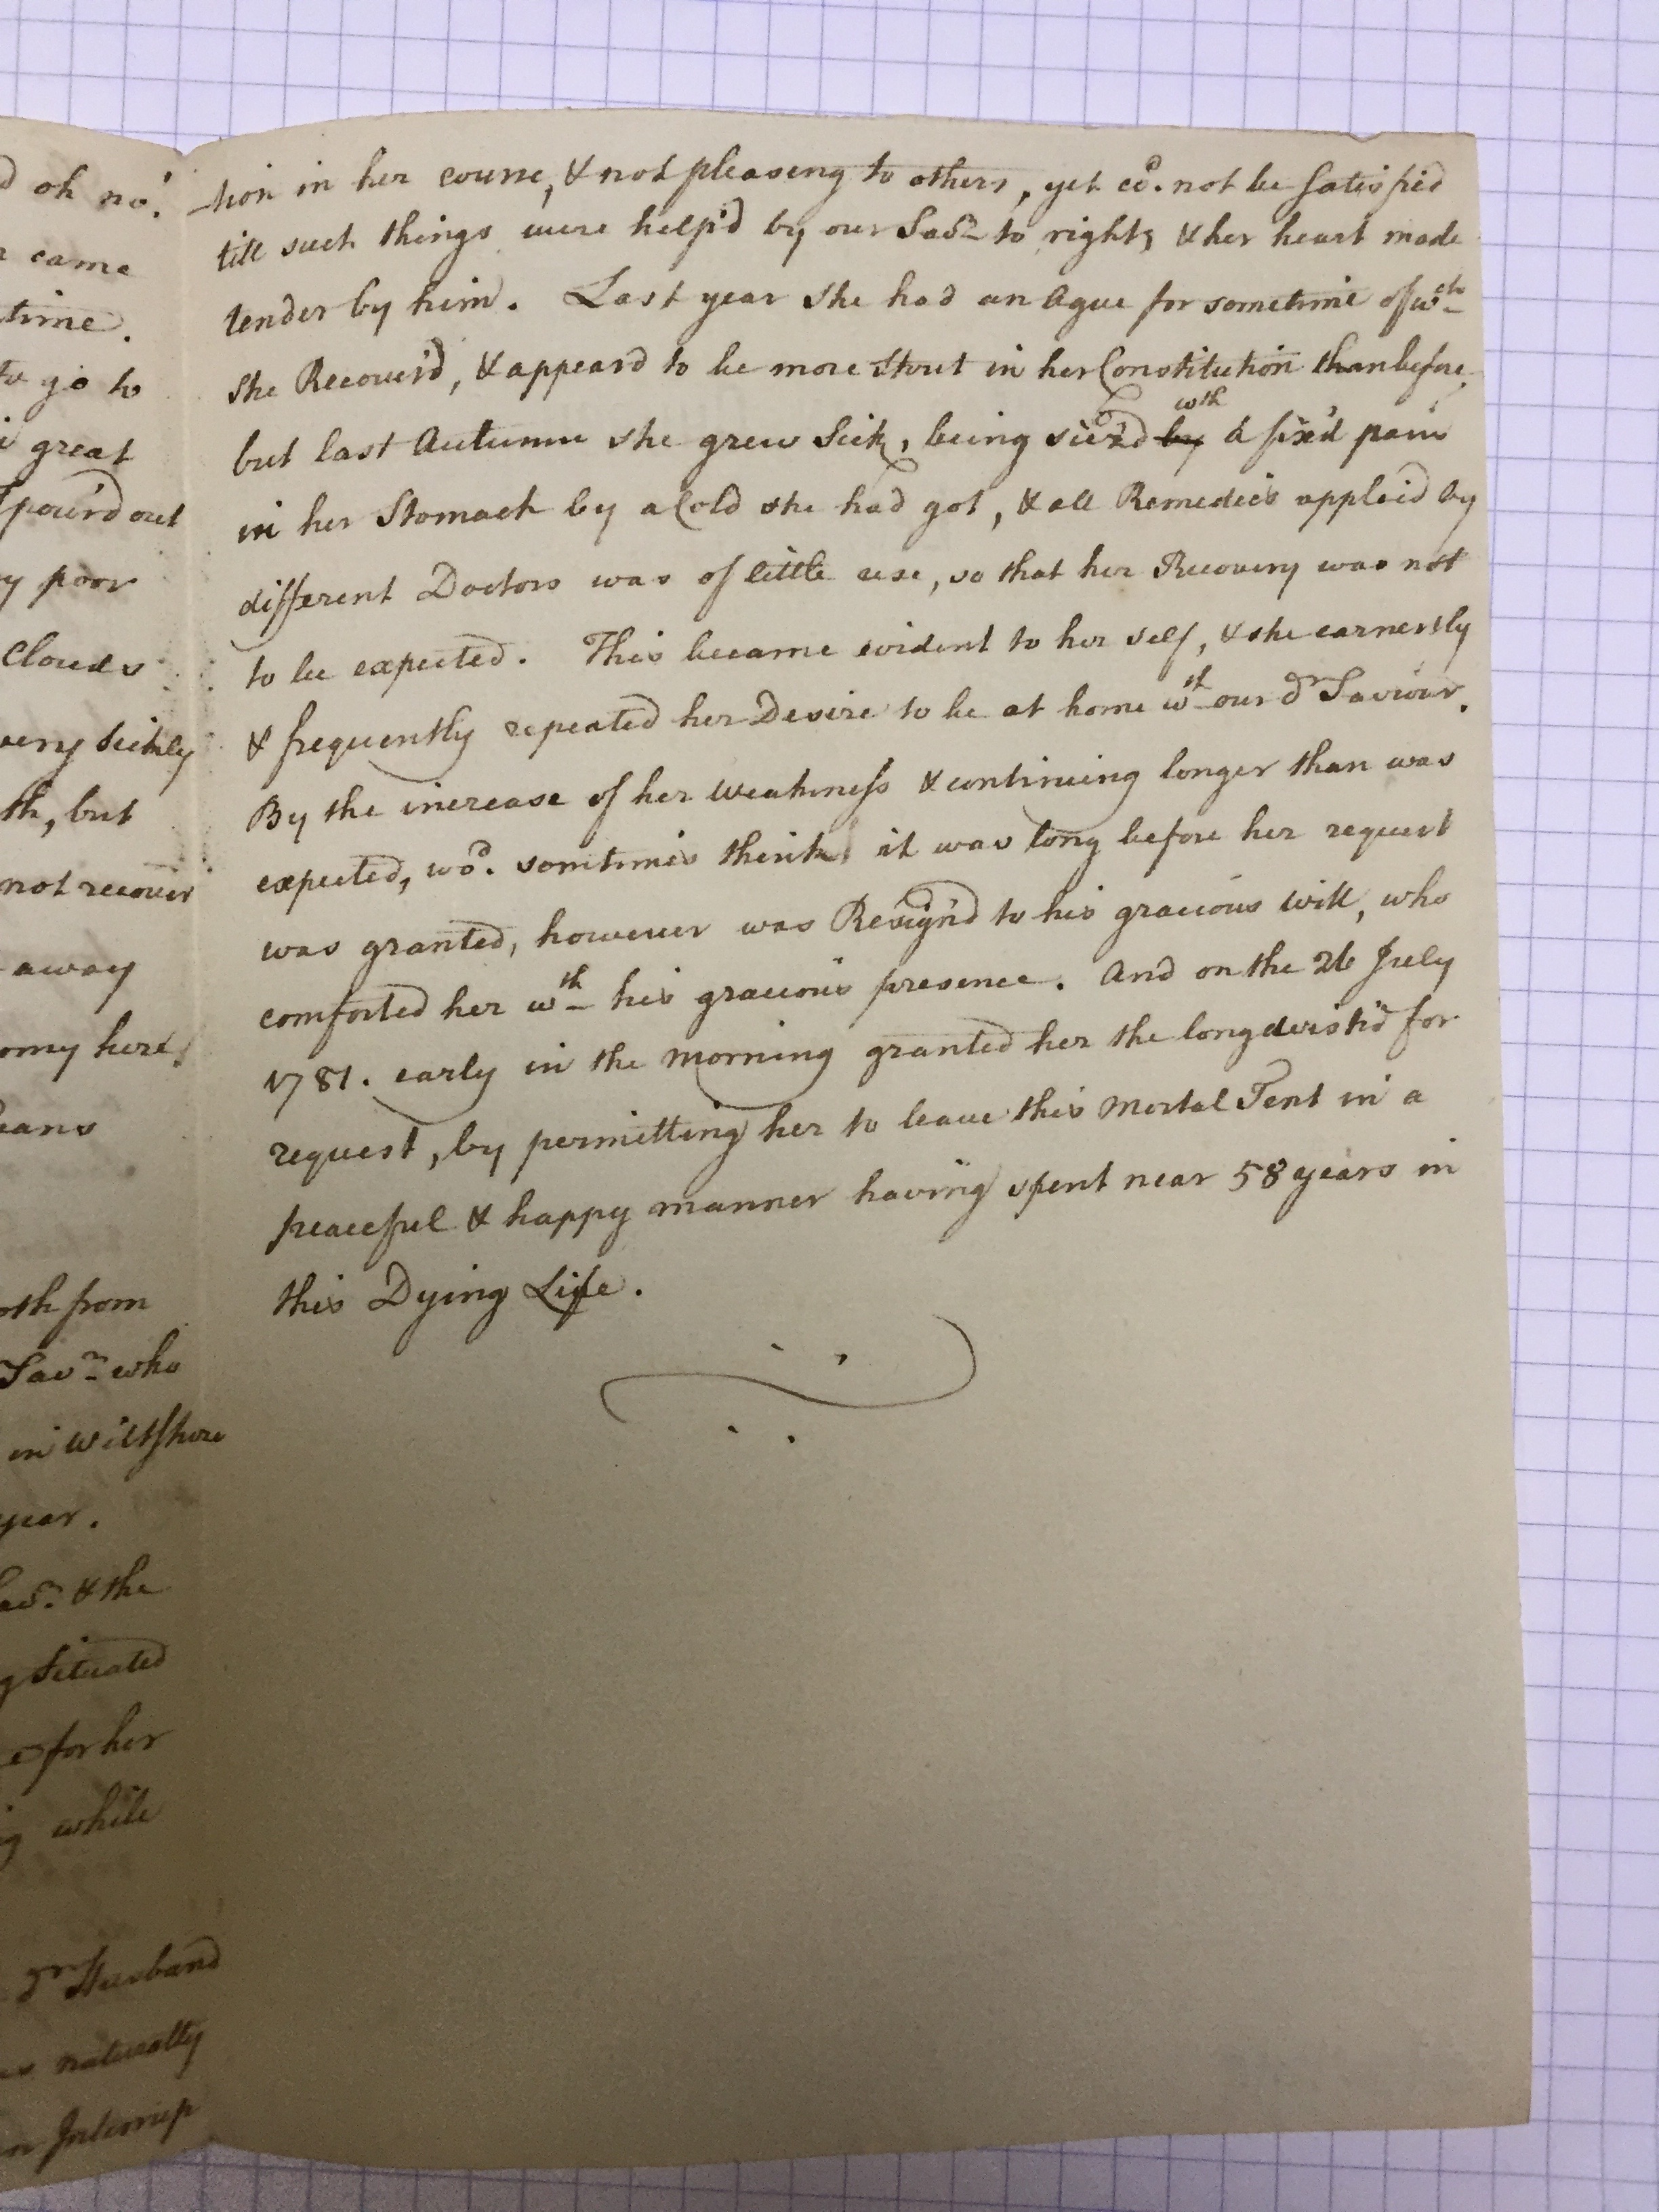 d oh no!
came
time.
to go to
great
pour'd out
y poor
Clouds
very sickly
th, but
not recover
away
omy here,
eans
oth from
Savr who
in Wiltshire
year.
Savr. & the
g Situated
e for her
ig while
dr Husband
naturally
Interrup
-tion in her course, & not pleasing to others, yet cd. not be satisfied
till such things were help'd by our Savr to rights & her heart made
tender by him. Last year she had an Ague for sometime of wch
she Recover'd, & appeard to be more stout in her Constitution than before,
but last Autumn she grew Sick, being siez'd by wth a fix'd pain
in her Stomach by a Cold she had got, & all Remedies appleid by
different Doctors was of little use, so that her Recovery was not
to be expected. This became evident to her self, & she earnestly
& frequently repeated her Desire to be at home wth our dr Saviour.
By the increase of her weakness & continuing longer than was
expected, wd. somtimes think it was long before her request
was granted, however was Resign'd to his gracious will, who
comforted her wth his gracious presence. And on the 26 July
1781. early in the morning granted her the long desir'd for
request, by permitting her to leave this Mortal Tent in a
peaceful & happy manner having spent near 58 years in
this Dying Life.